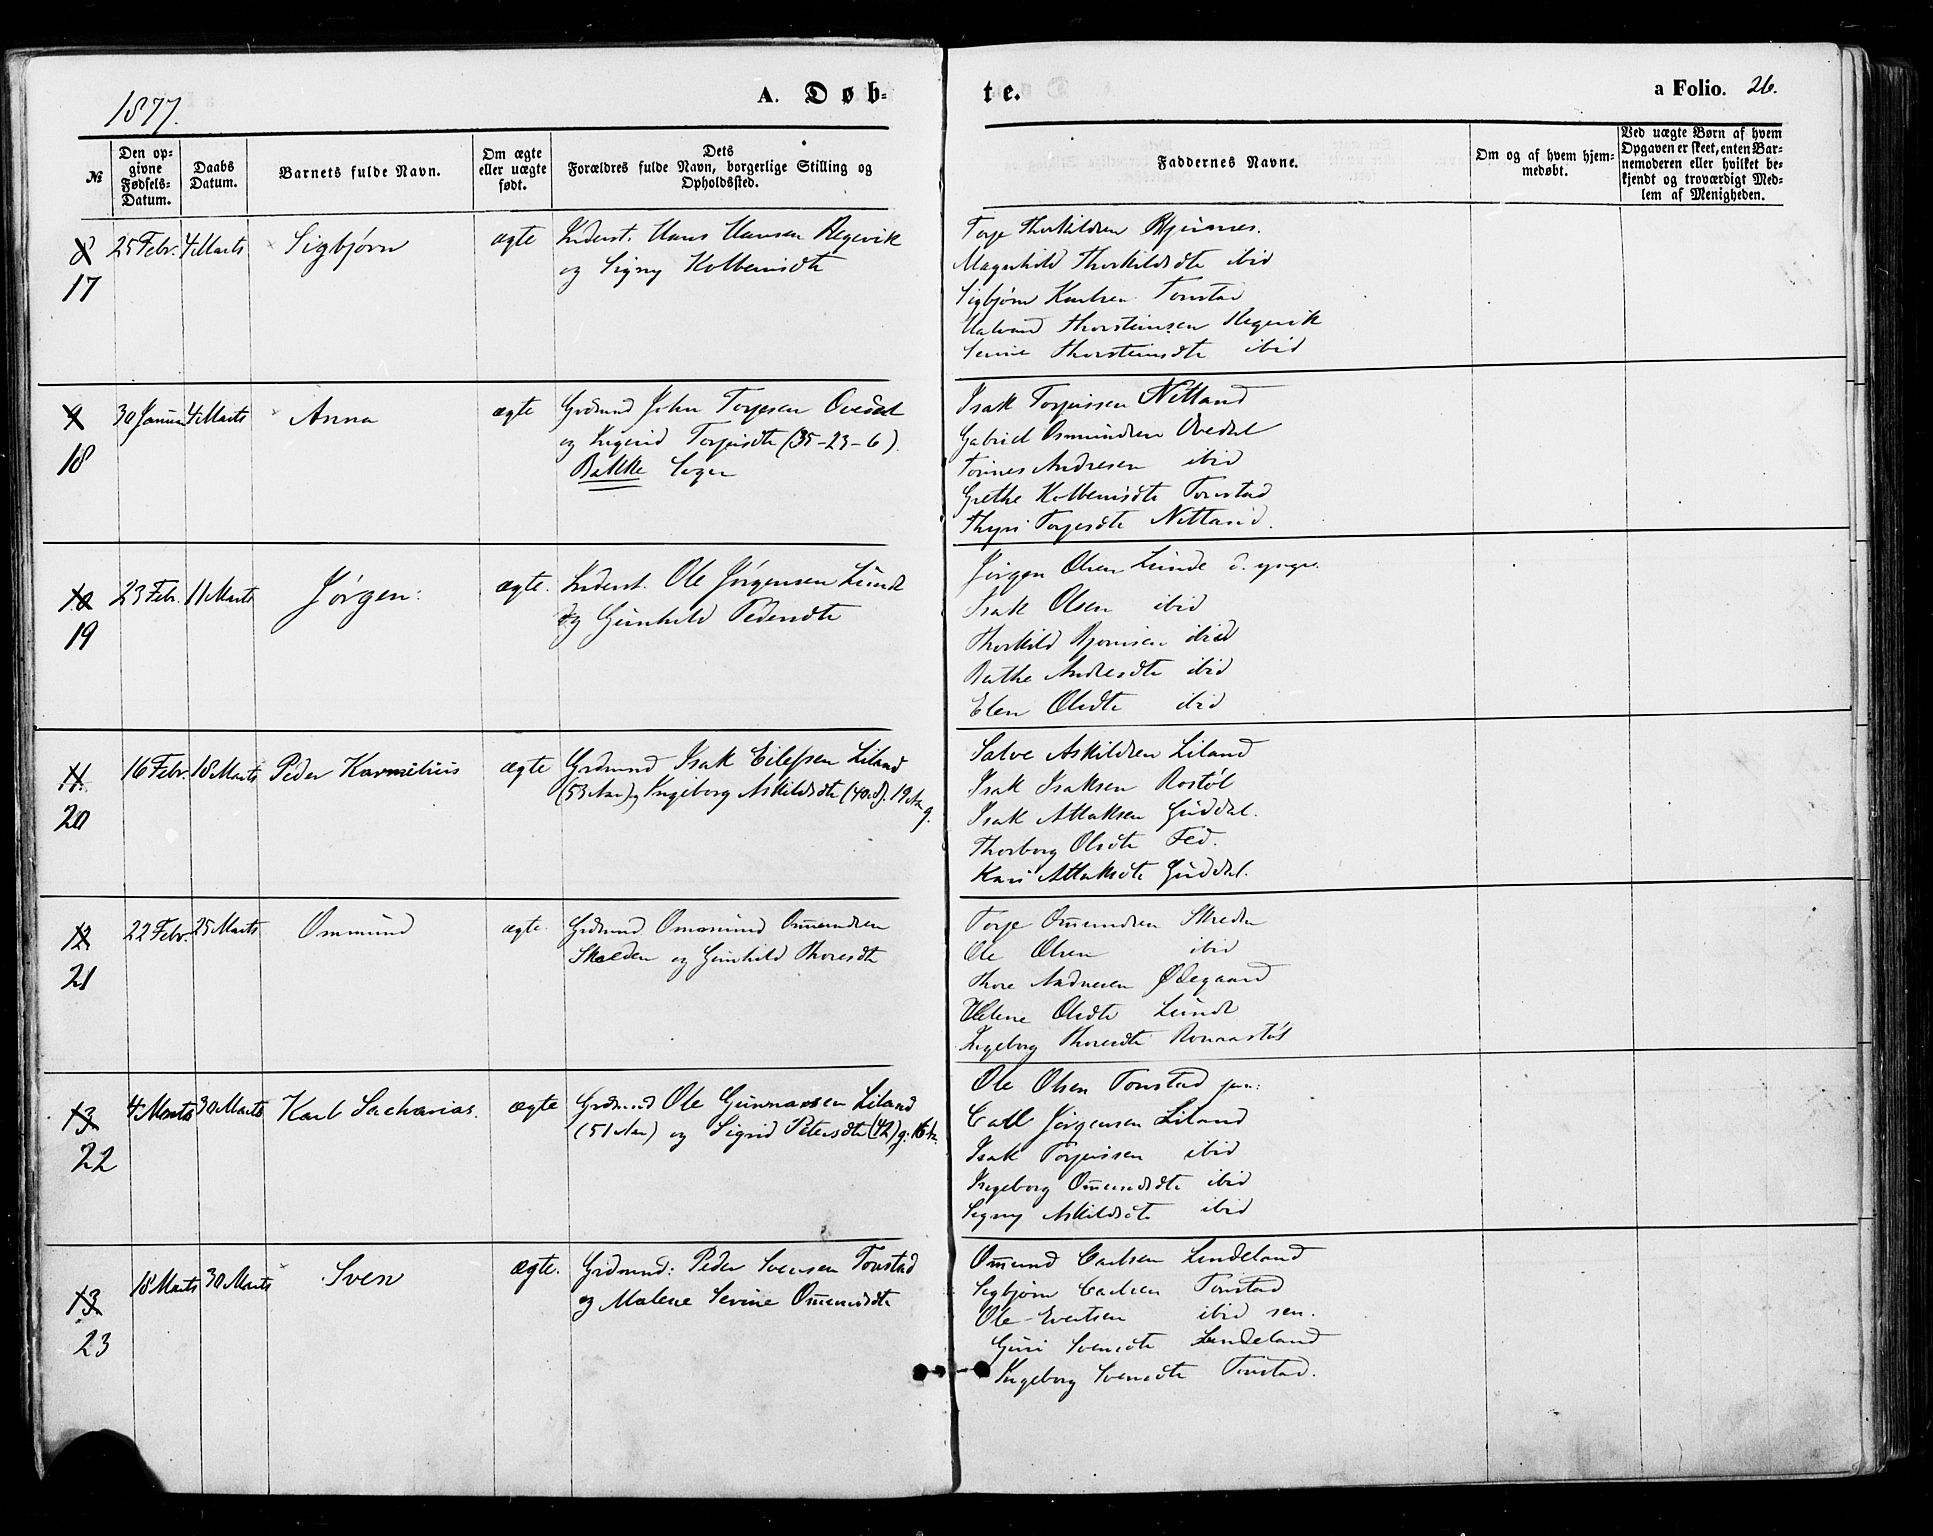 1877.
A. Døb-
te.
a Folio. 26.
№
Den op-
givne
Fødsels-
Datum.
Daabs
Datum.
Barnets fulde Navn.
Om ægte
eller uægte
født.
Dets
Forældres fulde Navn, borgerlige Stilling og
Opholdssted.
Faddernes Navne.
Om og af hvem hjem-
medøbt.
Ved uægte Børn af hvem
Opgaven er skeet, enten Bar-
nemoderen eller hvilket be-
kjendt og troværdigt Med-
lem af Menigheden.
8
17
25 Febr.
4 Marts
Sigbjørn
ægte
Inderst. Hans Hansen Regevik
og Signy
Magnhild Thorkildsdt ibid
Sigbjørn Karlsen Tonstad
Thorsteinsen
Thorsteinsdt ibid
9
18
30 Januar
4 Marts
Anna
ægte
Grdmnd John Torjesen Ovedal
og Ingerid Torjusdt (35-23-6).
Bakke Sogn
Isak Torjussen Netland
Gabriel Osmundsen Ovedal
Tønnes Andresen ibid
Grethe Tonstad
Torjesdt Netland.
10
19
23 Febr.
11 Marts
Jørgen:
ægte.
Inderst. Ole Jørgensen Lunde
og Gunhild Pedersdt
Jørgen Olsen Lunde d. yngre.
Isak Olsen ibid
Thorkild Bjornsen ibid
Berthe Andresdt ibid
Elen Olsdt ibid
11
20
16 Febr.
18 Marts
Peder Karnelius
ægte
Grdmnd Isak Eilefsen Liland
(53 Aar) og Ingeborg Askildsdt (40 d). 19 Aar
g.
Salve Askildsen Liland
Isak Isaksen Rostøl
Isak Atlaksen Guddal.
Thorborg Olsdt Fed.
Kari Atlaksdt Guddal.
12
21
22 Febr.
25 Marts
Ommund
ægte.
Grdmnd Ommund Om̅undsen
Skreden og Gunhild Thoresdt
Torje Om̅undsen Skreden
Ole Olsen ibid
Thore Andresen Ødegaard
Helene Olsdt Lunde
Ingeborg Thoresdt
13
22
4 Marts
30 Marts
Karl Sacharias.
ægte
Grdmnd Ole Gunnarsen Liland
(51 Aar) og Sigrid Petersdt (42) g. 16 A.
Ole Olsen Tonstad jun:
Carl Jørgensen Liland
Isak Torjussen ibid
Ingeborg Om̅undsdt ibid
Signy Askildsdt ibid
13
23
18 Marts
30 Marts
Sven
ægte.
Grdmnd: Peder Svensen Tonstad
og Malene Sevine Om̅undsdt
Om̅und Carlsen Lindeland
Sigbjørn Carlsen Tonstad
Ole Evertsen ibid sen.
Guri Svensdt Lindeland
Ingeborg Svensdt Tonstad.